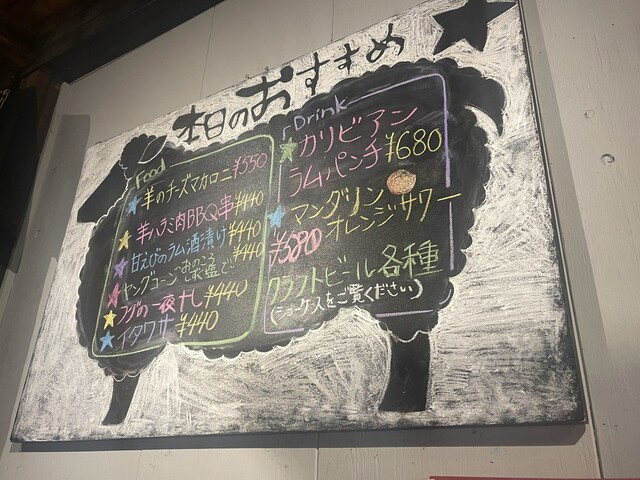 本日のおすすめ
Food
羊のチーズマカロニ ¥550
羊ハラミ肉BBQ串 ¥440
甘えびのラム酒漬け ¥440
ヤングコーン ¥440
フグの一夜干し ¥440
イタワサ ¥440
Drink
カリビアン
ラムパンチ ¥680
マンダリン
オレンジサワー
¥580
クラフトビール各種
(ショーケースをご覧ください)